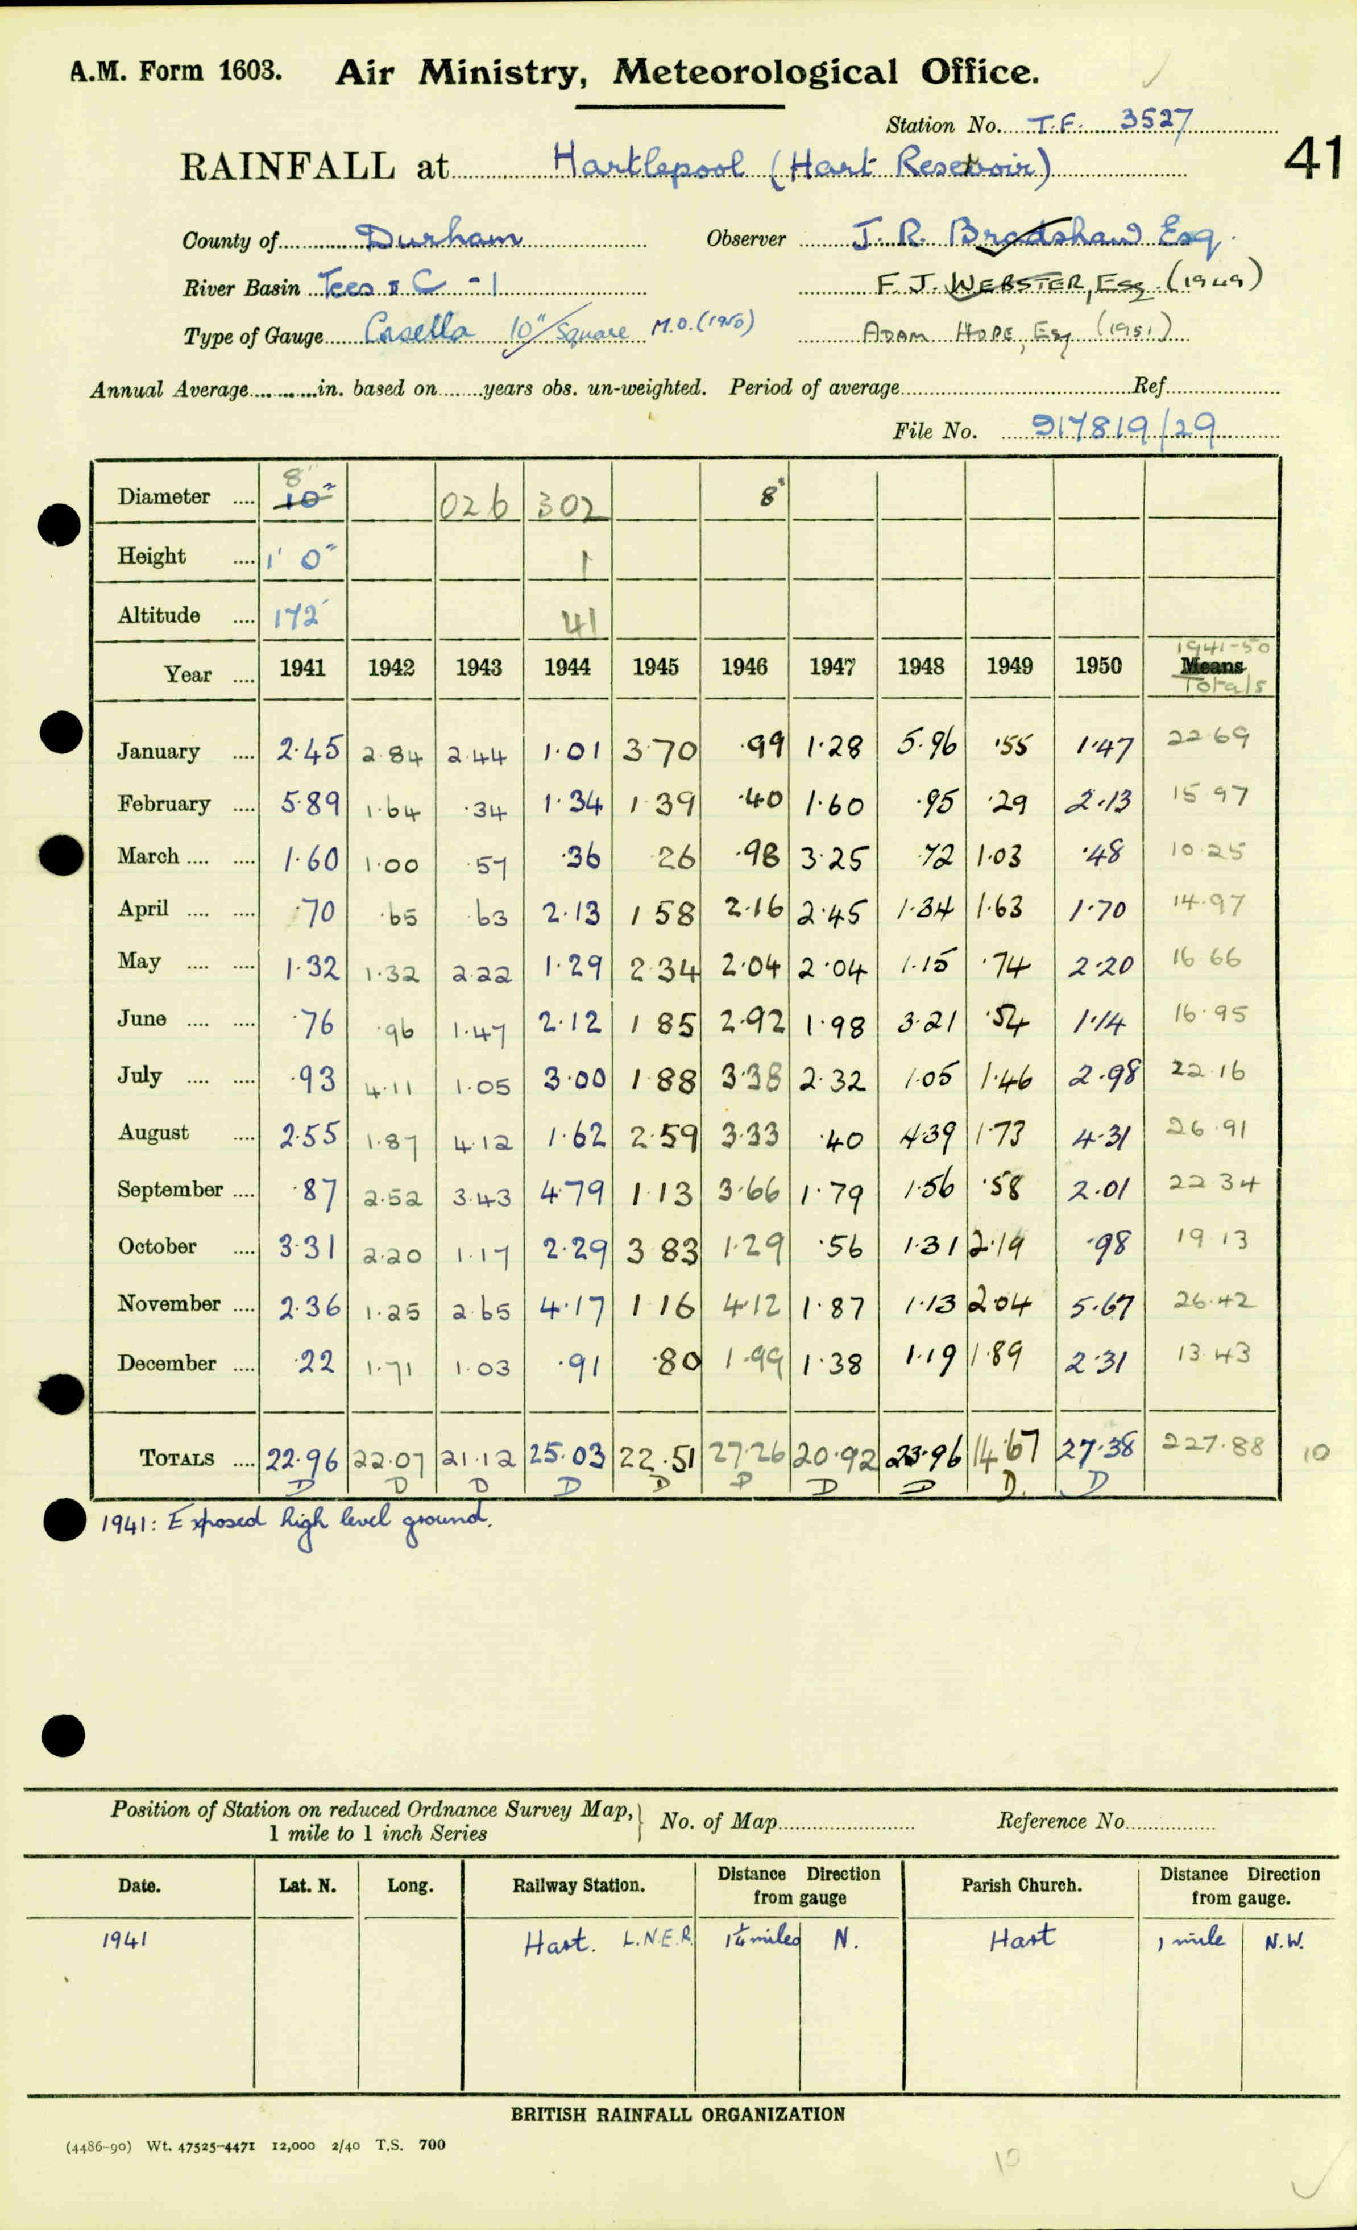 A.M. Form 1603. Air Ministry, Meteorological Office.
Station No. T.F. 3527
RAINFALL at Hartlepool (Hart Reservoir) 41
County of Durham Observer J. R. Bradshaw Esq.
River Basin Tees & C -1 F. J. WEBSTER, Esq. (1949)
Type of Gauge Casella 10" Square M.O. (1950) ADAM HOPE, Esq (1951)
Annual Average in. based on years obs. un-weighted. Period of average Ref
File No. 917819/29
Diameter 8" 10" 026 302 8"
Height 1' 0" 1
Altitude 172' 41
Year 1941 1942 1943 1944 1945 1946 1947 1948 1949 1950 1941-50 Means Totals
January 2.45 2.84 2.44 1.01 3.70 .99 1.28 5.96 .55 1.47 22.69
February 5.89 1.64 .34 1.34 1.39 .40 1.60 .95 .29 2.13 15.97
March 1.60 1.00 .57 .36 26 .98 3.25 .72 1.03 .48 10.25
April .70 .65 .63 2.13 1 58 2.16 2.45 1.34 1.63 1.70 14.97
May 1.32 1.32 2.22 1.29 2 34 2.04 2.04 1.15 .74 2.20 16 66
June .76 .96 1.47 2.12 1 85 2.92 1.98 3.21 .54 1.14 16.95
July .93 4.11 1.05 3.00 1 88 3.38 2.32 1.05 1.46 2.98 22.16
August 2.55 1.87 4.12 1.62 2.59 3.33 .40 4.39 1.73 4.31 26.91
September .87 2.52 3.43 4.79 1 13 3.66 1.79 1.56 .58 2.01 22 34
October 3.31 2.20 1.17 2.29 3 83 1.29 .56 1.31 2.19 .98 19 13
November 2.36 1.25 2.65 4.17 1 16 4.12 1.87 1.13 2.04 5.67 26.42
December .22 1.71 1.03 .91 .80 1.99 1.38 1.19 1.89 2.31 13.43
TOTALS 22.96 22.07 21.12 25.03 22.51 27.26 20.92 23.96 14.67 27.38 227.88 10
D D D D D D D D D. D
1941: Exposed high level ground.
Position of Station on reduced Ordnance Survey Map, No. of Map Reference No.
1 mile to 1 inch Series
Date. Lat. N. Long. Railway Station. Distance Direction from gauge Parish Church. Distance Direction from gauge.
1941 Hart. L.N.E.R. 1¼ miles N. Hart 1 mile N.W.
BRITISH RAINFALL ORGANIZATION
(4486-90) Wt. 47525-4471 12,000 2/40 T.S. 700
10